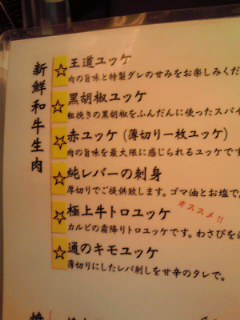 新鮮和牛生肉
☆王道ユッケ
肉の旨味と特製ダレのせみをお楽しみくだ
☆黒胡椒ユッケ
粗挽きの黒胡椒をふんだんに使ったスパイ
☆赤ユッケ(薄切り一枚ユッケ)
肉の旨味を最大限に感じられるユッケです
☆純レバーの刺身
厚切りでご提供致します。ゴマ油とお塩で
オススメ!!
☆極上牛トロユッケ
カルビの霜降りトロユッケです。わさびを
☆通のキモユッケ
薄切りにしたレバ刺しを甘辛のタレで。